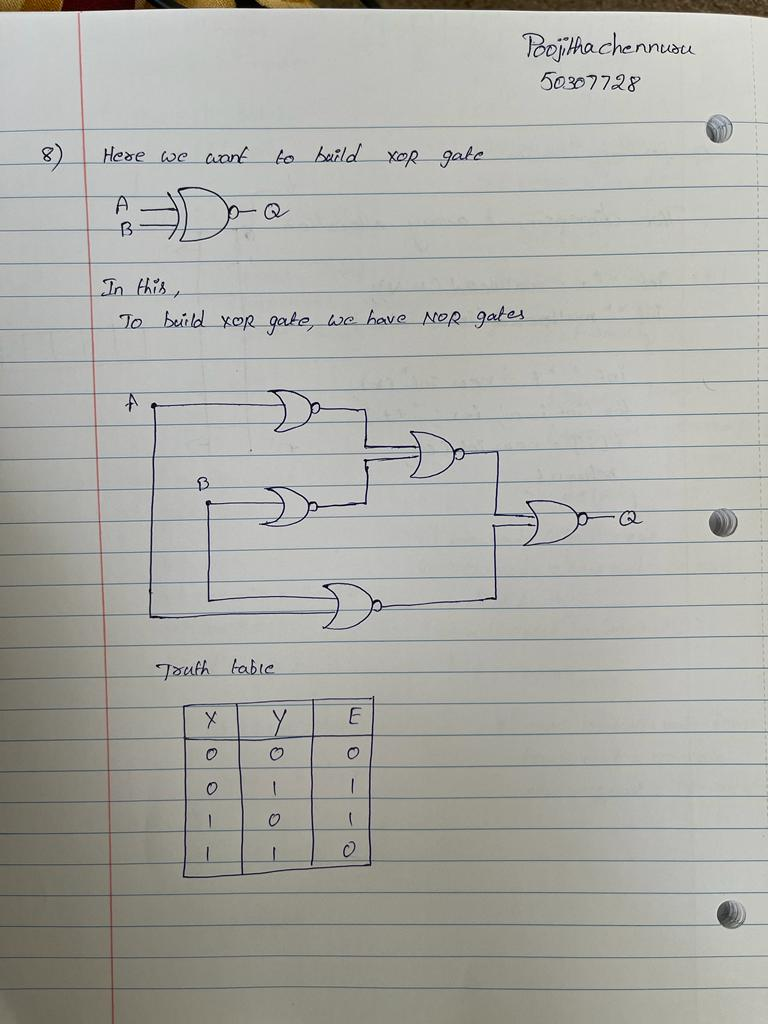 Poojitha chennuru
50307728
8) Here we want to build XOR gate
A
B
Q
In this,
To build XOR gate, we have NOR gates
A
B
Q
Truth table
X Y E
0 0 0
0 1 1
1 0 1
1 1 0